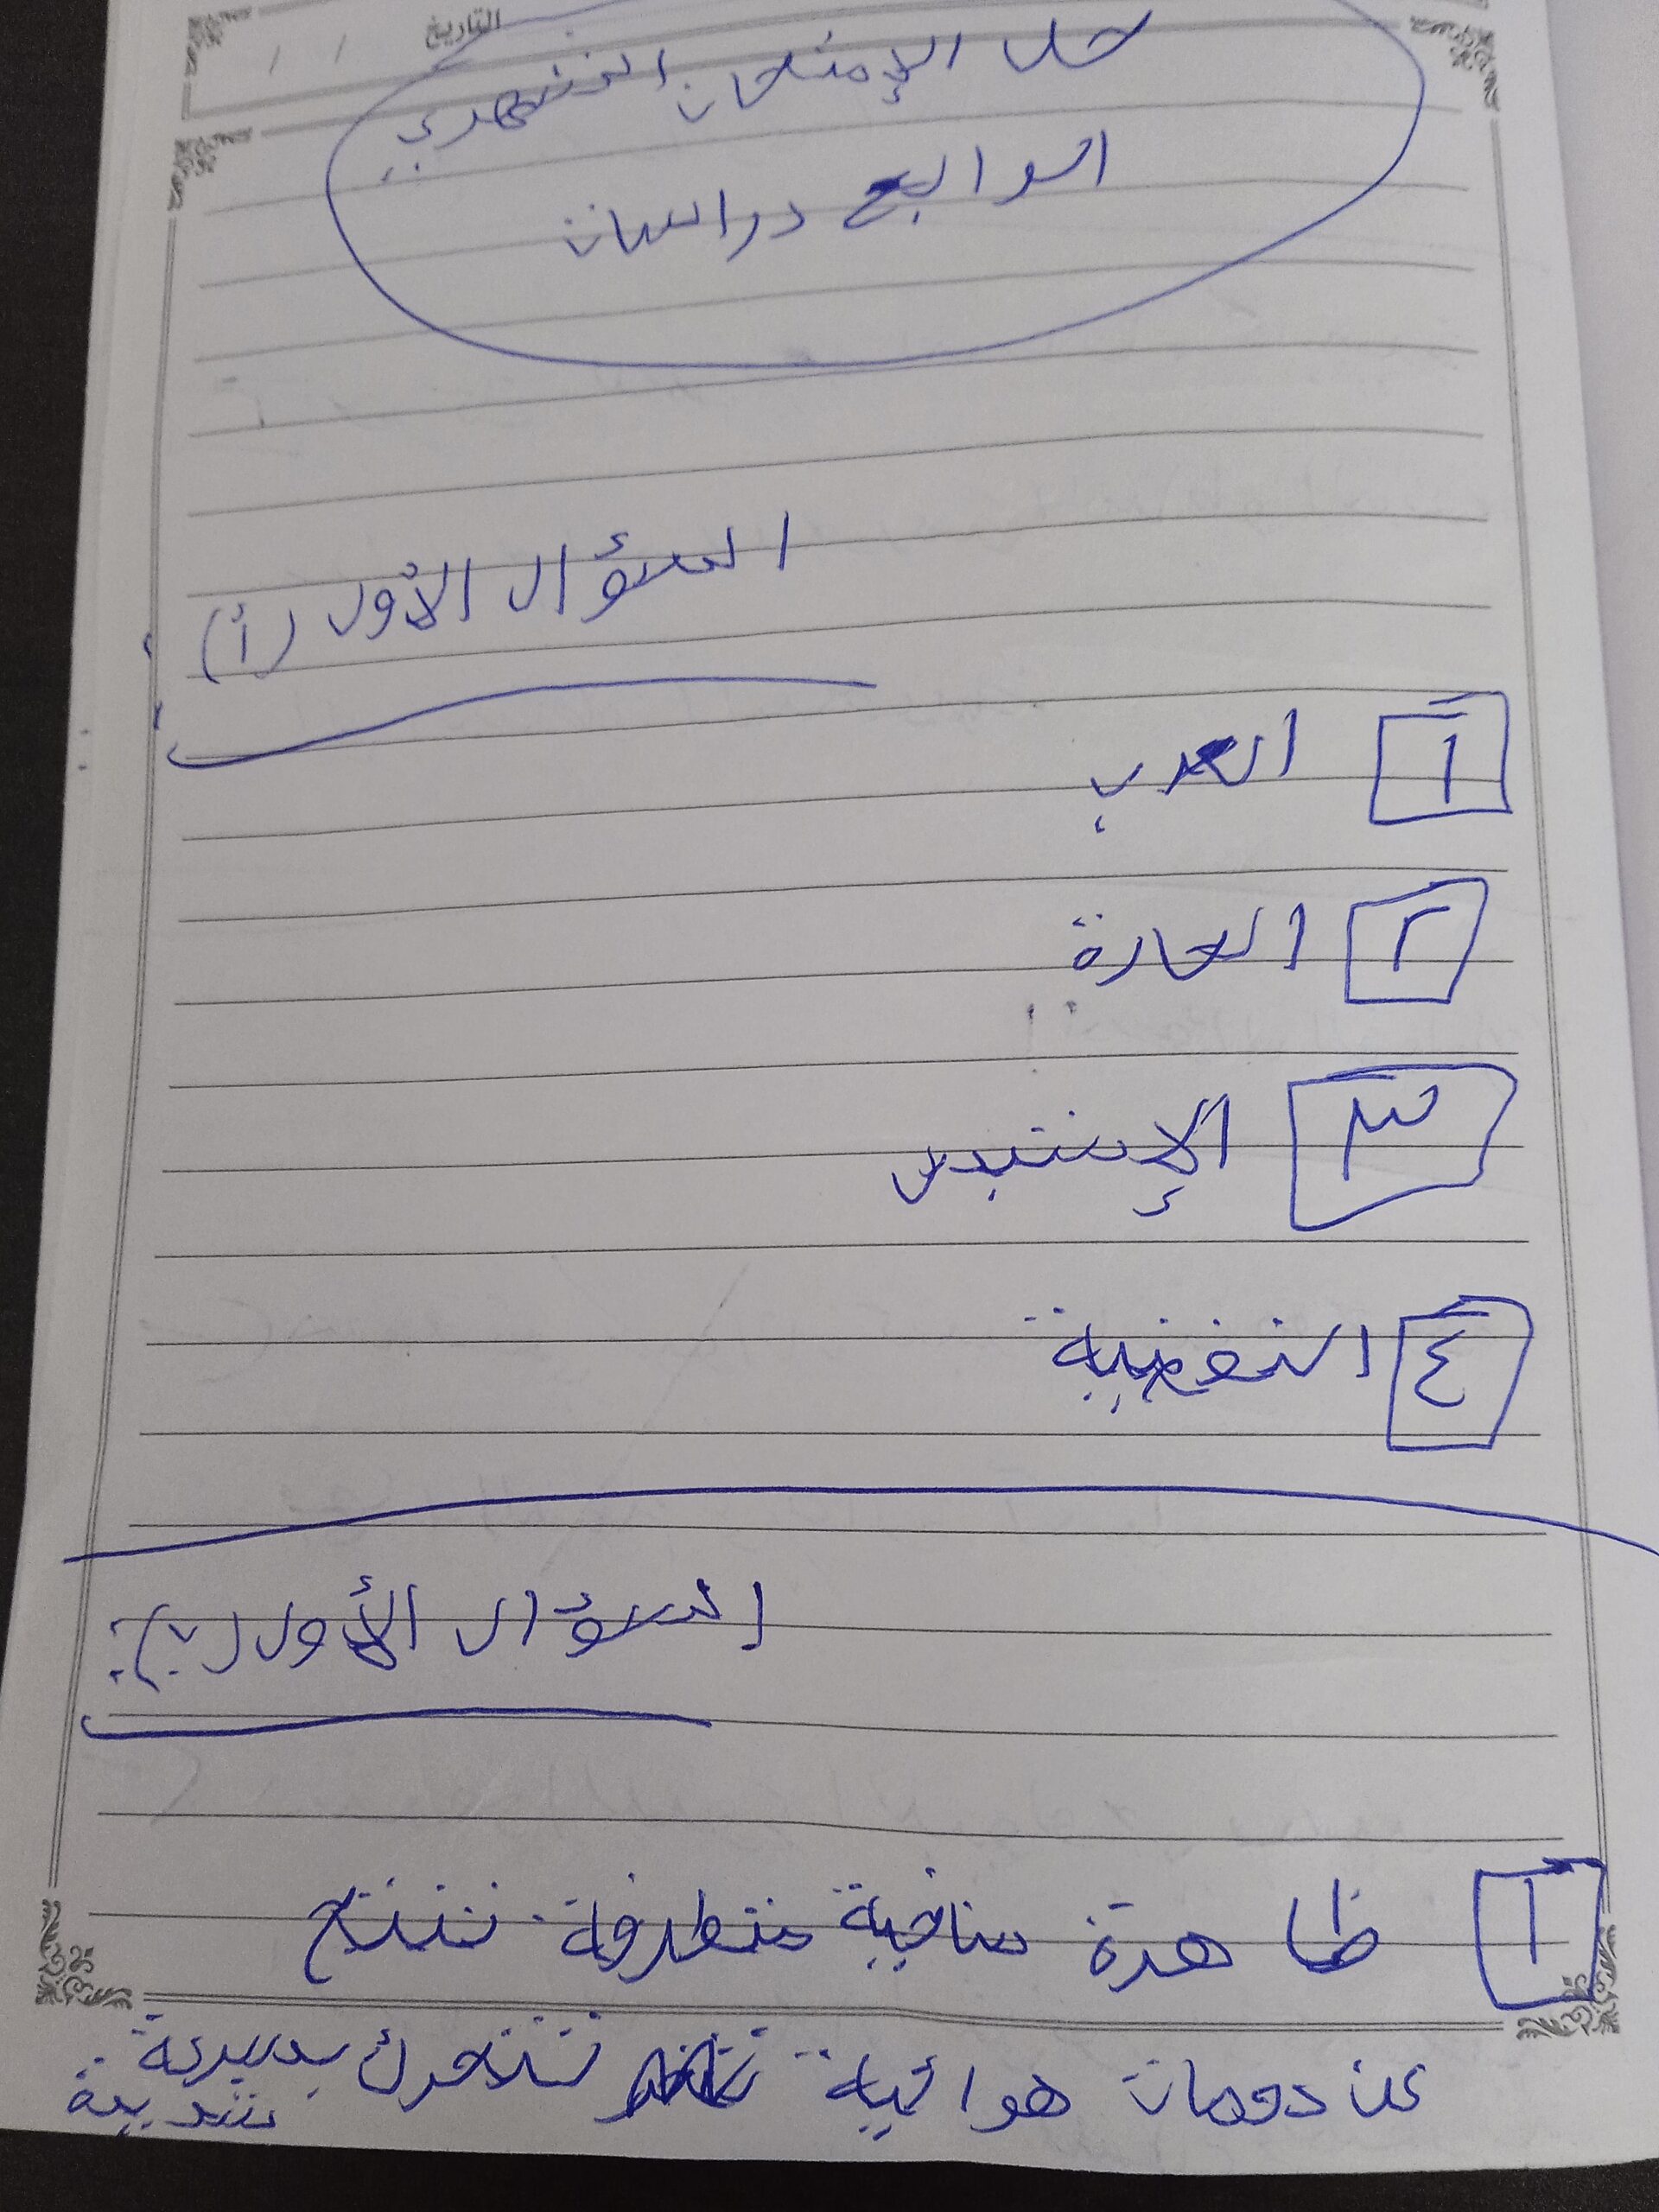 التاريخ / /
حل الإمتحان الشهري
الرابع دراسات
السؤال الأول (أ)
١ العرب
٢ الحارة
٣ الإستبس
٤ النفضية
السؤال الأول (ب):
١ ظاهرة مناخية متطرفة تنتج
عن دومات هوائية تتحرك بسرعة
شديدة